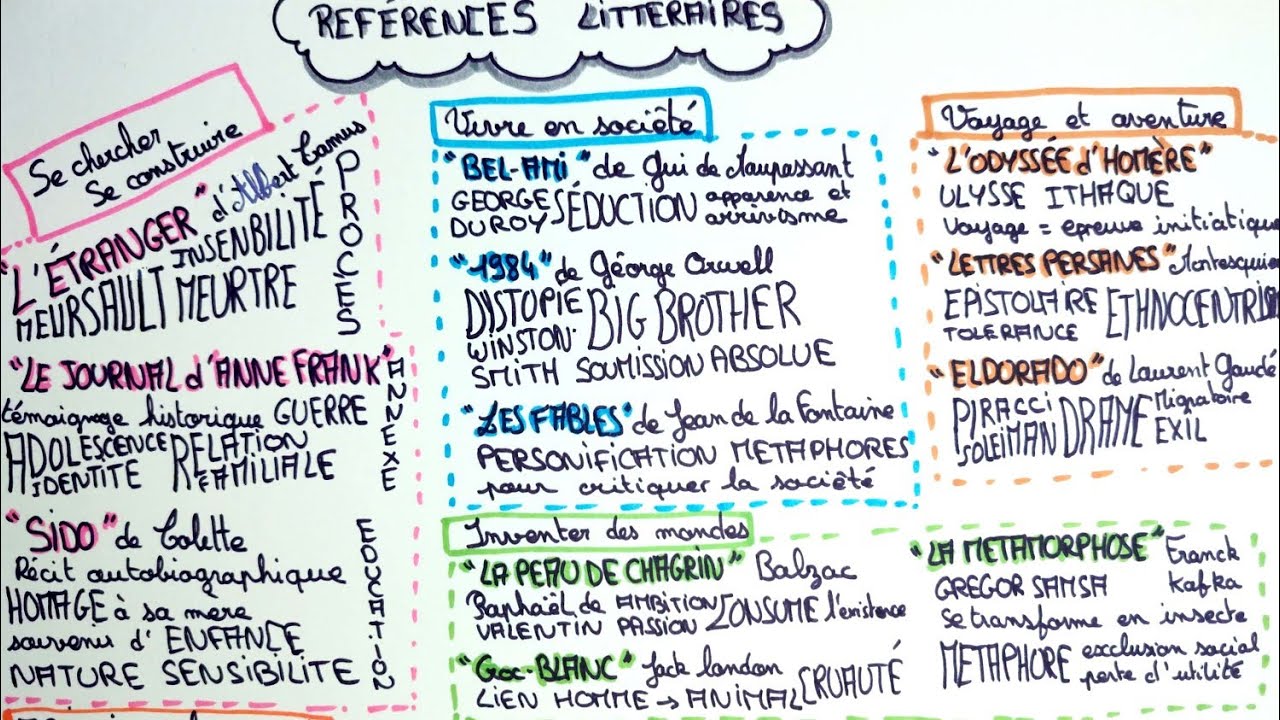 RÉFÉRENCES LITTERAIRES
Se chercher
Se construire
"L'ÉTRANGER" d'Albert Camus
INSENBILITÉ
MEURSAULT MEURTRE
PROCES
"LE JOURNAL d'ANNE FRANK"
témoignage historique GUERRE
ADOLESCENCE RELATION
IDENTITE FAMILIALE
ANNEXE
"SIDO" de Colette
Récit autobiographique
HOMAGE à sa mere
souvenirs d'ENFANCE
NATURE SENSIBILITE
EDUCATION
Vivre en société
"BEL-AMI" de Gui de Maupassant
GEORGE SÉDUCTION apparence et
DUROY arrivisme
"1984" de Géorge Orwell
DISTOPIE BIG BROTHER
WINSTON
SMITH SOUMISSION ABSOLUE
"LES FABLES" de Jean de la Fontaine
PERSONIFICATION METAPHORES
pour critiquer la société
Voyage et aventure
"L'ODYSSÉE d'HOMÈRE"
ULYSSE ITHAQUE
Voyage = épreuve initiatique
"LETTRES PERSANES" Montesquieu
EPISTOLAIRE ETHNOCENTRISM
TOLERANCE
"ELDORADO" de Laurent Gaudé
PIRACCI DRAME Migratoire
SOLEIMAN EXIL
Inventer des mondes
"LA PEAU DE CHAGRIN" Balzac
Raphaël de AMBITION CONSUME l'existence
VALENTIN PASSION
"Croc-BLANC" Jack london
LIEN HOMME → ANIMAL CRUAUTÉ
"LA METAMORPHOSE" Franck
GREGOR SAMSA Kafka
se transforme en insecte
METAPHORE exclusion social
perte d'utilité